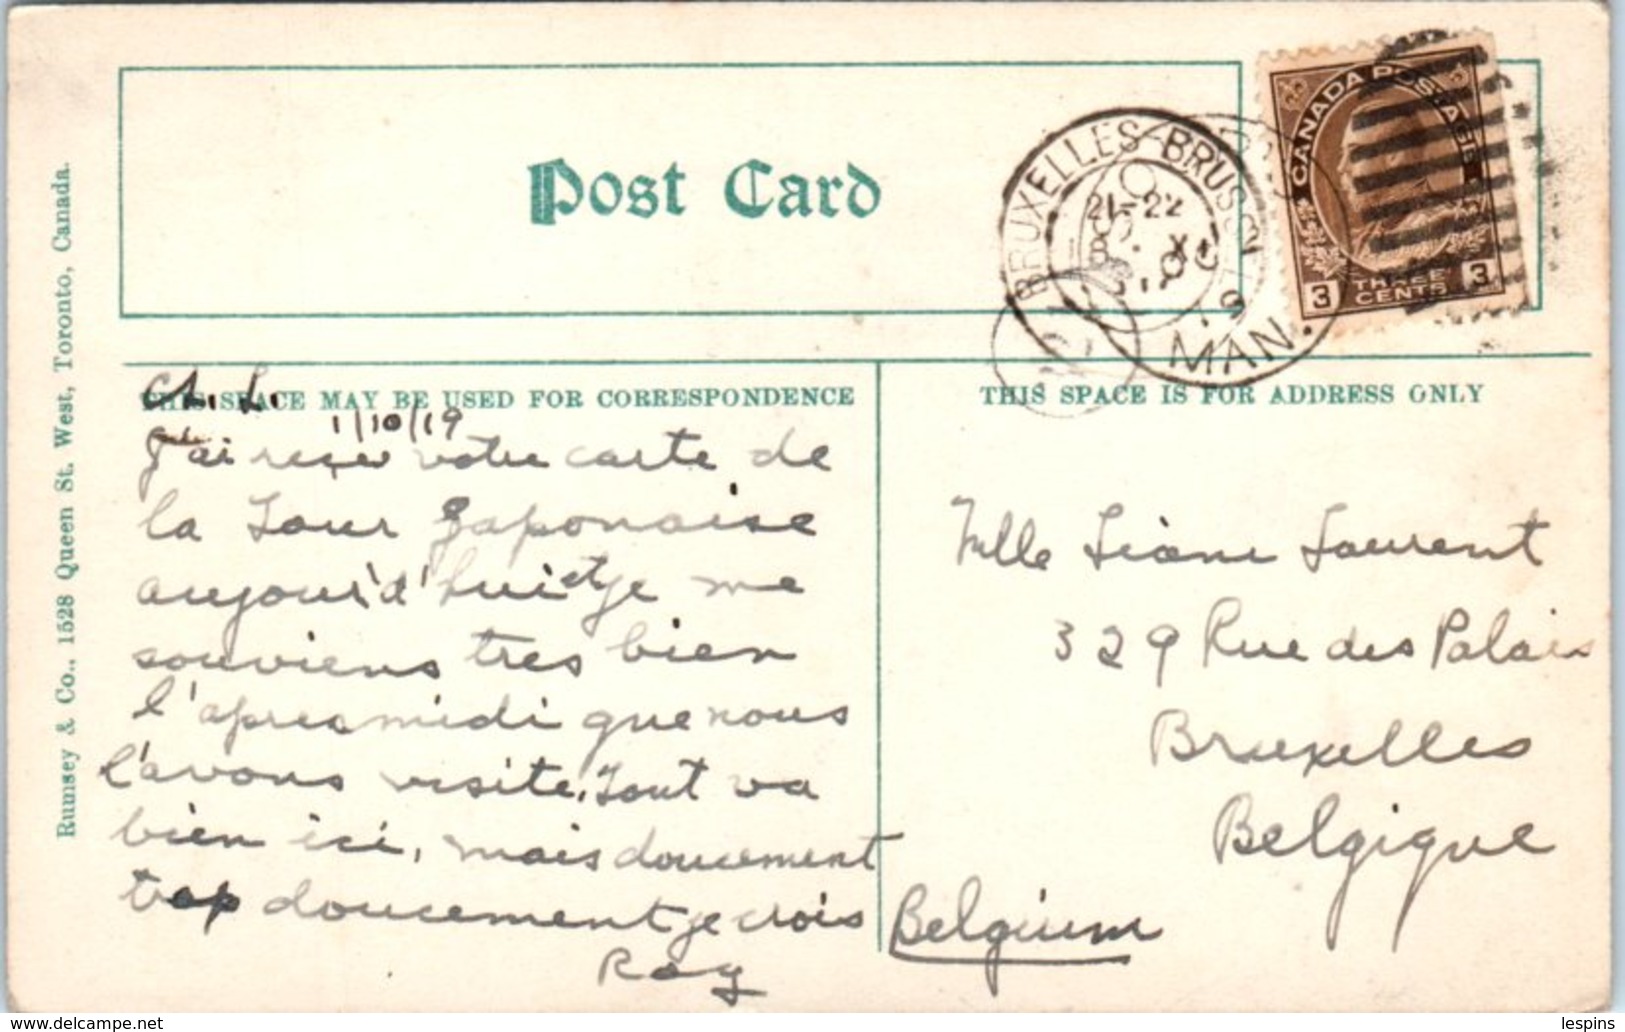 Post Card
CANADA POSTAGE
3 THREE CENTS 3
BRUXELLES-BRUSSEL
21-22
MAN.
THIS SPACE MAY BE USED FOR CORRESPONDENCE
THIS SPACE IS FOR ADDRESS ONLY
1/10/19
J'ai reçu votre carte de
la Tour Japonaise
aujourd'hui et je me
souviens tres bien
l'apres midi que nous
l'avons visite. Tout va
bien ici, mais doucement
trop doucement je crois
Ray
Mlle Liane Laurent
329 Rue des Palais
Bruxelles
Belgique
Belgium
Rumsey & Co., 1528 Queen St. West, Toronto, Canada.
lespins